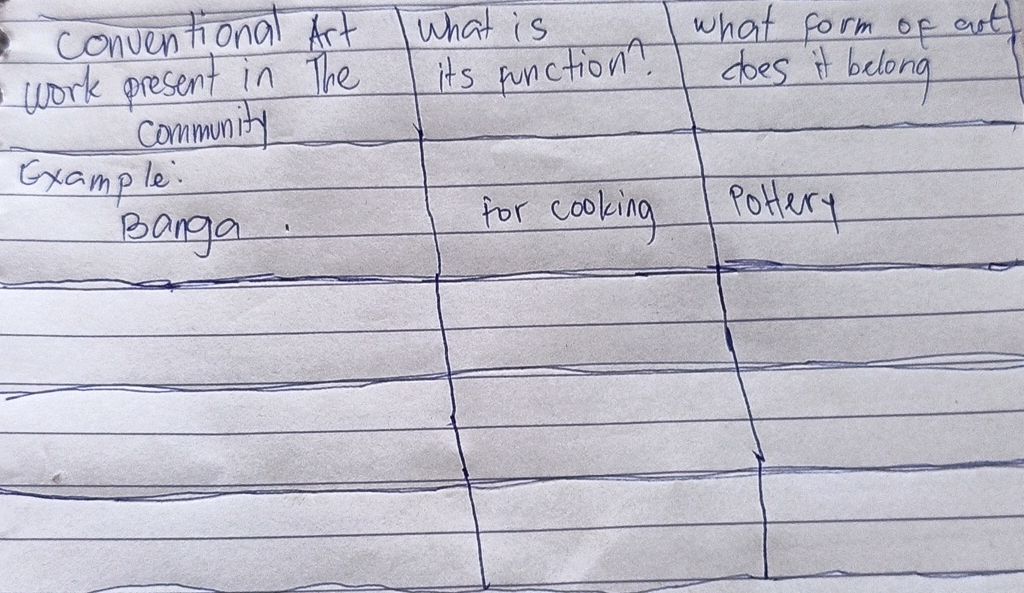 Conventional Art
work present in The
Community
What is
its function?
what form of art
does it belong
Example:
Banga .
for cooking
Pottery